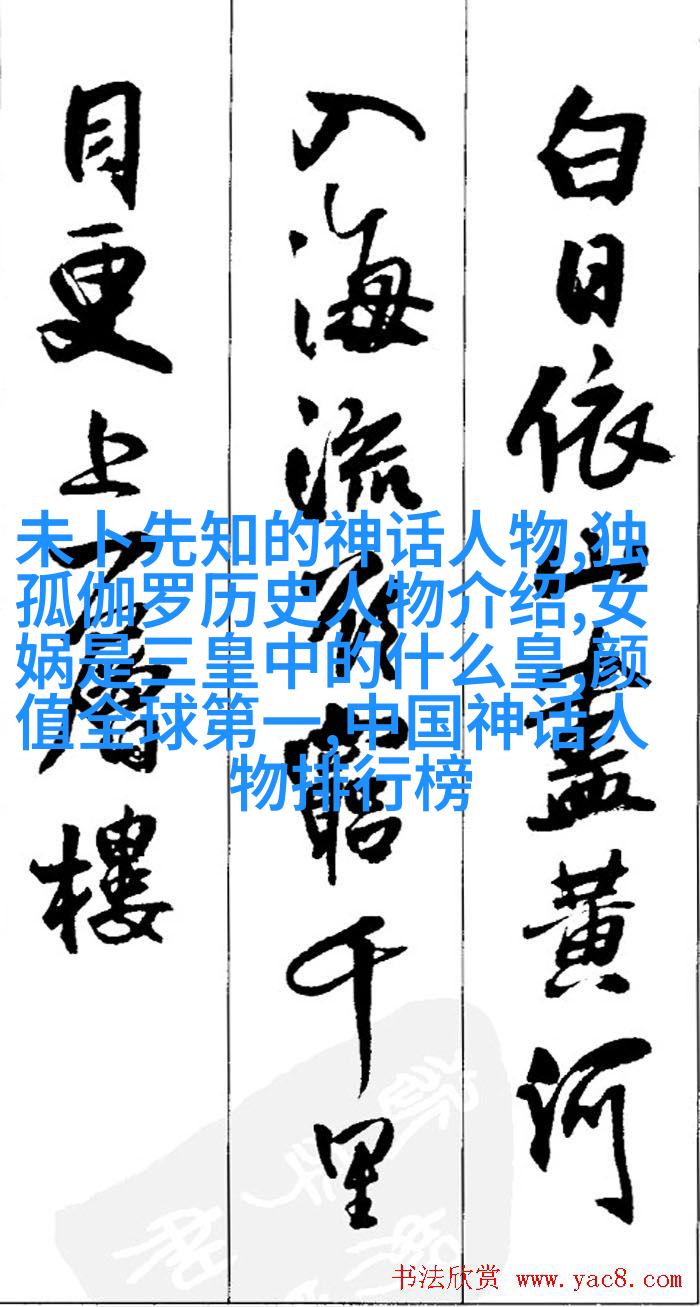 白日依山盡黄河
入海流欲窮千里
目更上一層樓
未卜先知的神话人物,独
孤伽罗历史人物介绍,女
娲是三皇中的什么皇,颜
值全球第一,中国神话人
物排行榜
书法欣赏 www.yac8.com